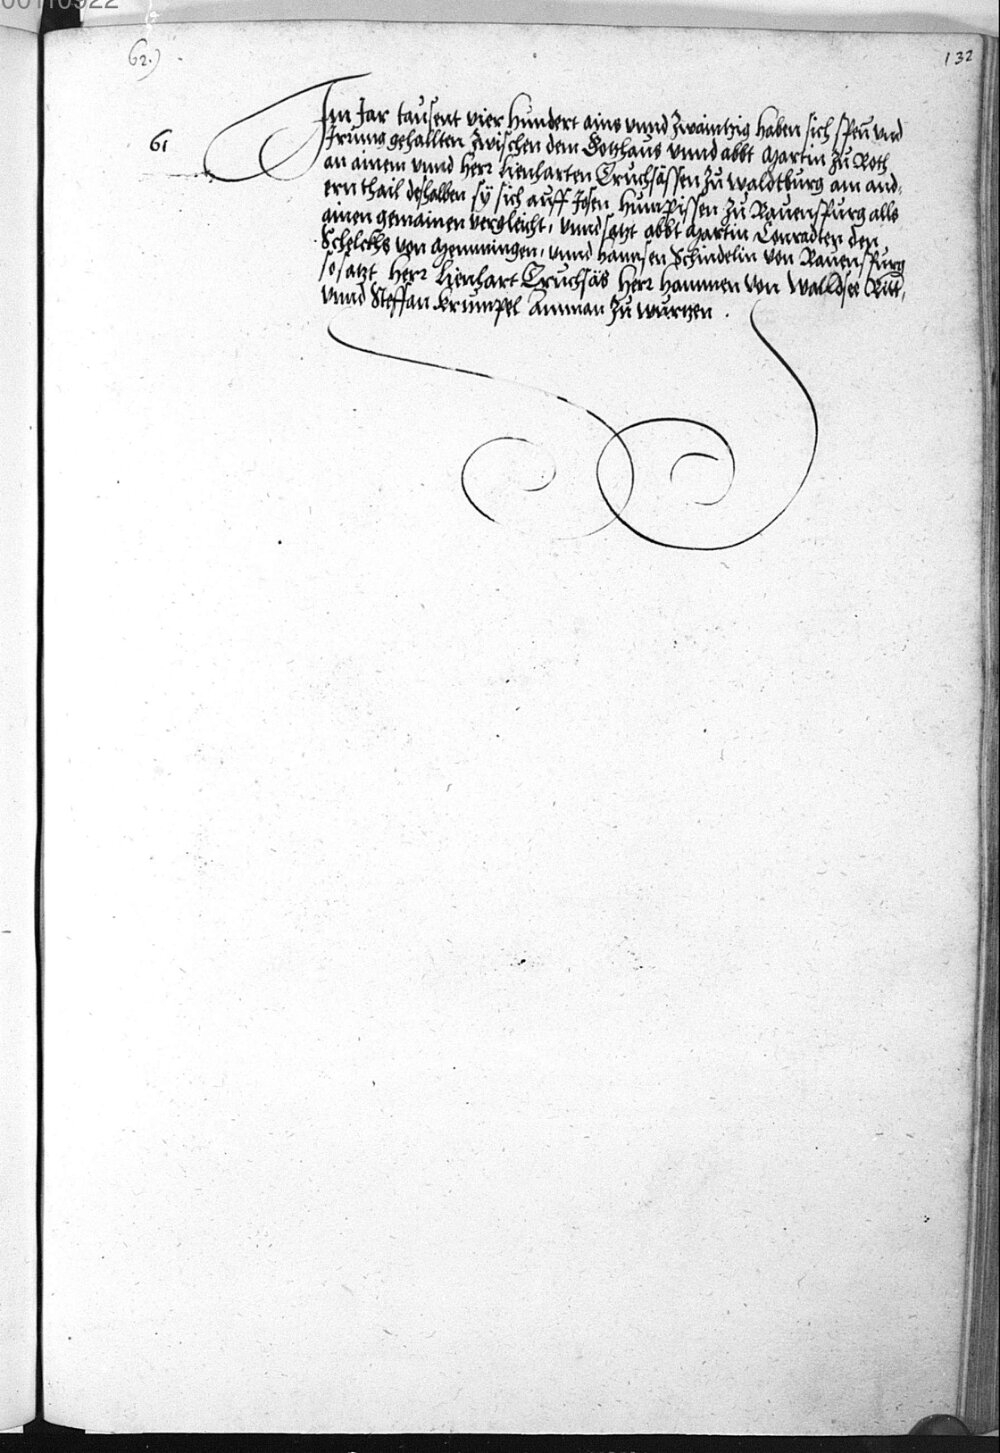 00110922
62.)
132
61
Im Jar tausent vier Hundert ains vnnd Zwaintzig haben sich spen vnd
Irrung gehallten Zwischen dem Gotzhaus vnnd abbt Martin Zu Roth
an ainem vnnd Herr Lienharten Truchsässen Zu Waldtburg am and,
ern thail deshalben sy sich auff Josen Humpissen Zu Rauenspurg alls
ainen gemainen vergleicht, vnnd satzt abbt Martin Conradten den
Schelchs von Memmingen, vnnd Hannsen Schindelin von Rauenspurg
so satzt Herr Lienhart Truchsäs Herr Hannnen von Walldsee Ritt,
vnnd Steffan Krumpel Amman Zu Wurtzen .